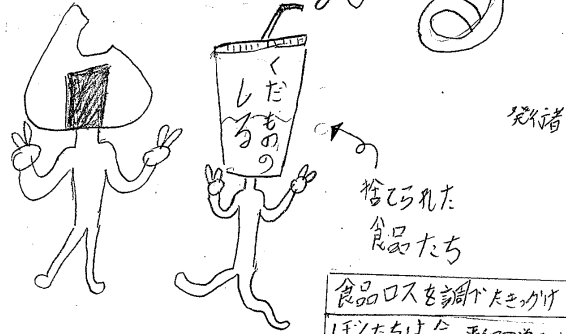 くだものの
しる
発行者
捨てられた
食品たち
食品ロスを調べたきっかけ